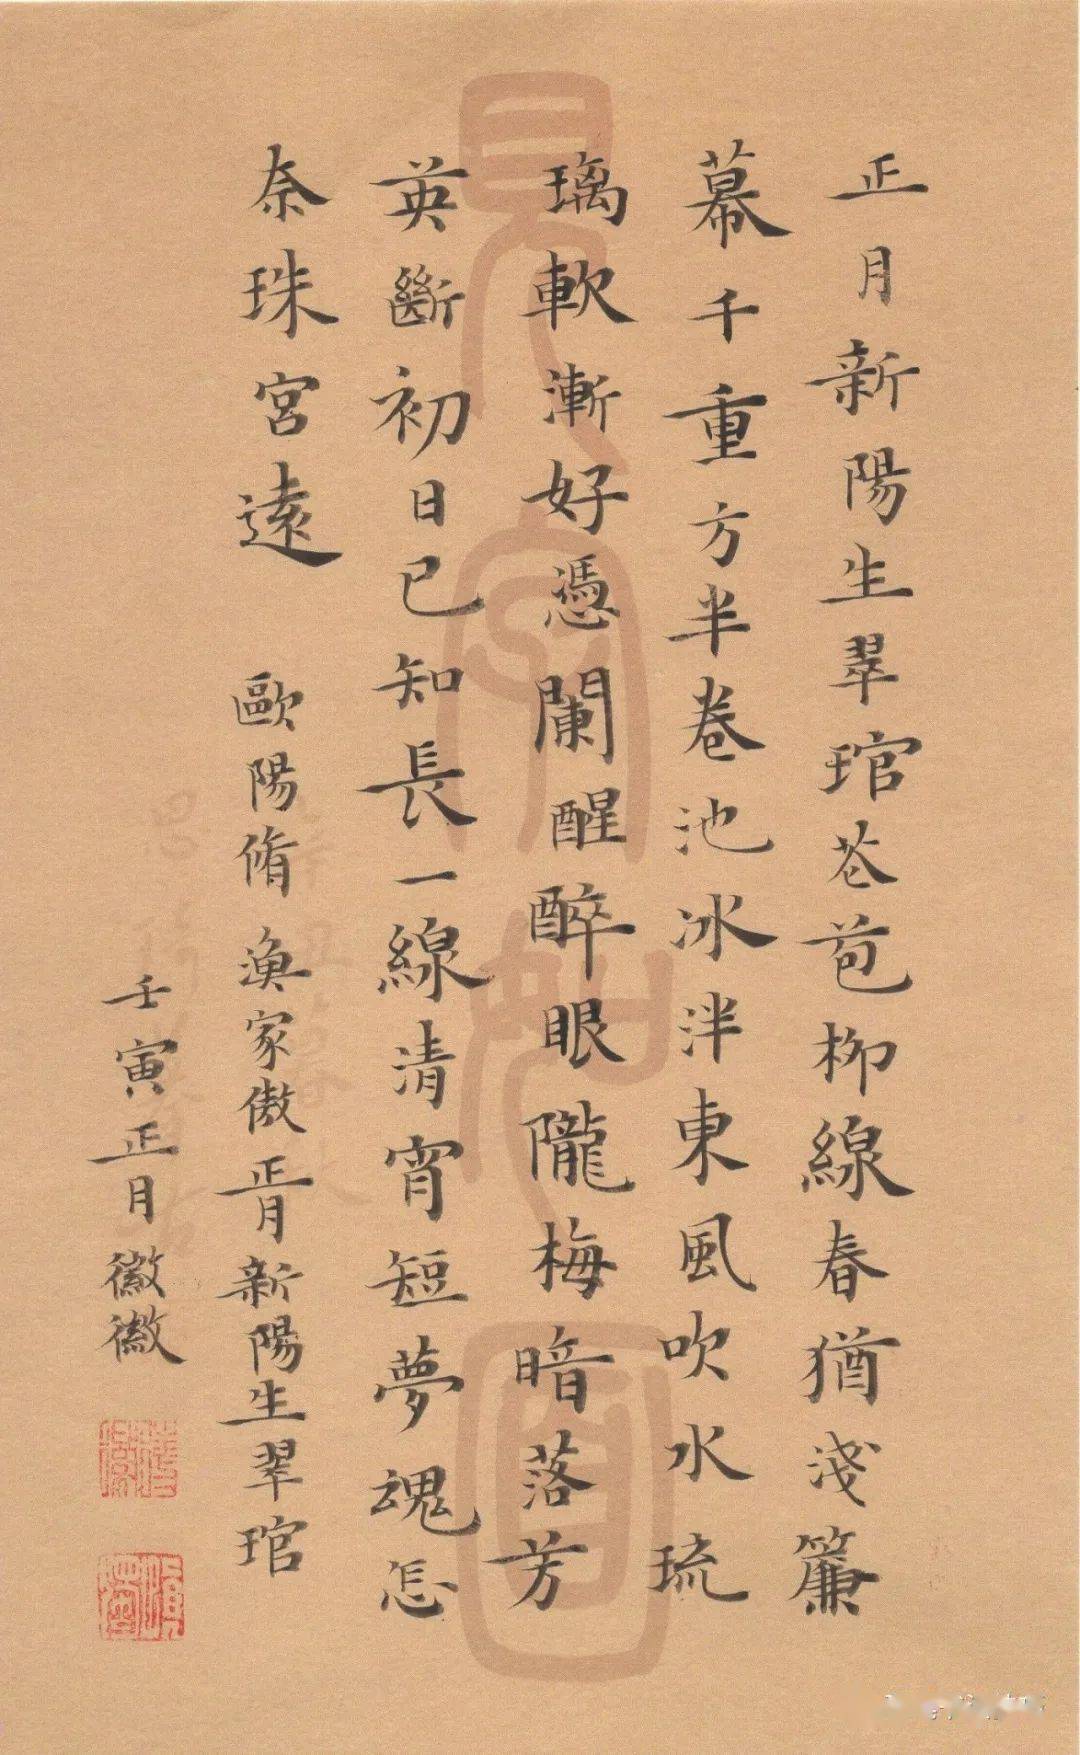 正月新陽生翠琯苍苞柳線春猶淺簾
幕千重方半卷池冰泮東風吹水琉
璃軟漸好憑闌醒醉眼隴梅暗落芳
英斷初日已知長一線清宵短夢魂怎
奈珠宮遠
歐陽脩漁家傲正月新陽生翠琯
壬寅正月徽徽